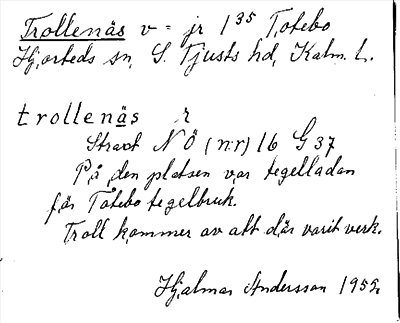 Trollenäs v = jr 1 35 Totebo
Hjorteds sn, S. Tjusts hd, Kalm. L.
trollenäs r
Strax NÖ (nr) 16 G 37
På den platsen var tegelladan
för Totebo tegelbruk.
Troll kommer av att där varit verk.
Hjalmar Andersson 1955